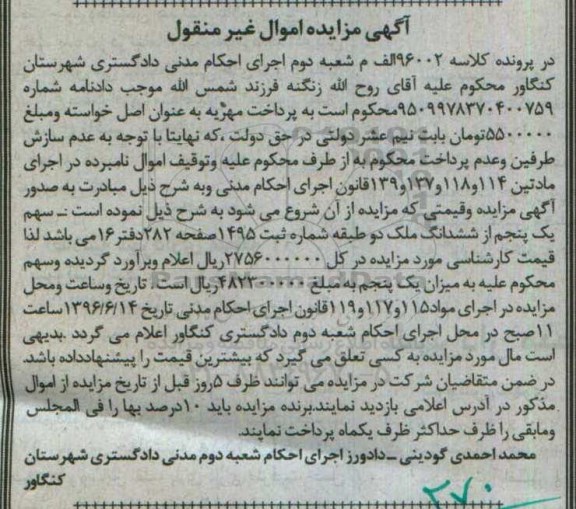 آگهی مزایده اموال غیر منقول
در پرونده کلاسه ۹۶۰۰۲الف م شعبه دوم اجرای احکام مدنی دادگستری شهرستان
کنگاور محکوم علیه آقای روح الله زنگنه فرزند شمس الله موجب دادنامه شماره
۹۵۰۹۹۷۸۳۷۰۴۰۰۷۵۹محکوم است به پرداخت مهریه به عنوان اصل خواسته ومبلغ
۵۵۰۰۰۰۰تومان بابت نیم عشر دولتی در حق دولت ،که نهایتا با توجه به عدم سازش
طرفین وعدم پرداخت محکوم به از طرف محکوم علیه وتوقیف اموال نامبرده در اجرای
مادتین ۱۱۴و۱۱۸و۱۳۷و۱۳۹قانون اجرای احکام مدنی وبه شرح ذیل مبادرت به صدور
آگهی مزایده وقیمتی که مزایده از آن شروع می شود به شرح ذیل نموده است :ـ سهم
یک پنجم از ششدانگ ملک دو طبقه شماره ثبت ۱۴۹۵صفحه ۲۸۲دفتر۱۶می باشد لذا
قیمت کارشناسی مورد مزایده در کل ۲۷۵۶۰۰۰۰۰۰ریال اعلام وبرآورد گردیده وسهم
محکوم علیه به میزان یک پنجم به مبلغ ۴۸۲۳۰۰۰۰۰ریال است. تاریخ وساعت ومحل
مزایده در اجرای مواد۱۱۵و۱۱۷و۱۱۹قانون اجرای احکام مدنی تاریخ ۱۳۹۶/۶/۱۴ساعت
۱۱صبح در محل اجرای احکام شعبه دوم دادگستری کنگاور اعلام می گردد .بدیهی
است مال مورد مزایده به کسی تعلق می گیرد که بیشترین قیمت را پیشنهادداده باشد.
در ضمن متقاضیان شرکت در مزایده می توانند ظرف ۵روز قبل از تاریخ مزایده از اموال
مذکور در آدرس اعلامی بازدید نمایند.برنده مزایده باید ۱۰درصد بها را فی المجلس
ومابقی را ظرف حداکثر ظرف یکماه پرداخت نمایند.
محمد احمدی گودینی ـ دادورز اجرای احکام شعبه دوم مدنی دادگستری شهرستان
کنگاور
۲۷۰